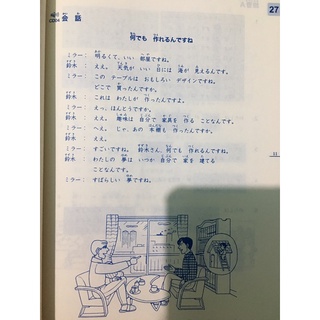 27
会話
何でも 作れるんですね
ミラー： 明るくて、いい 部屋ですね。
鈴木： ええ。天気が いい 日には 海が 見えるんです。
ミラー： この テーブルは おもしろい デザインですね。
どこで 買ったんですか。
鈴木： これは わたしが 作ったんですよ。
ミラー： えっ、ほんとうですか。
鈴木： ええ。趣味は 自分で 家具を 作る ことなんです。
ミラー： へえ。じゃ、あの 本棚も 作ったんですか。
鈴木： ええ。
ミラー： すごいですね。鈴木さん、何でも 作れるんですね。
鈴木： わたしの 夢は いつか 自分で 家を 建てる
ことなんです。
ミラー： すばらしい 夢ですね。